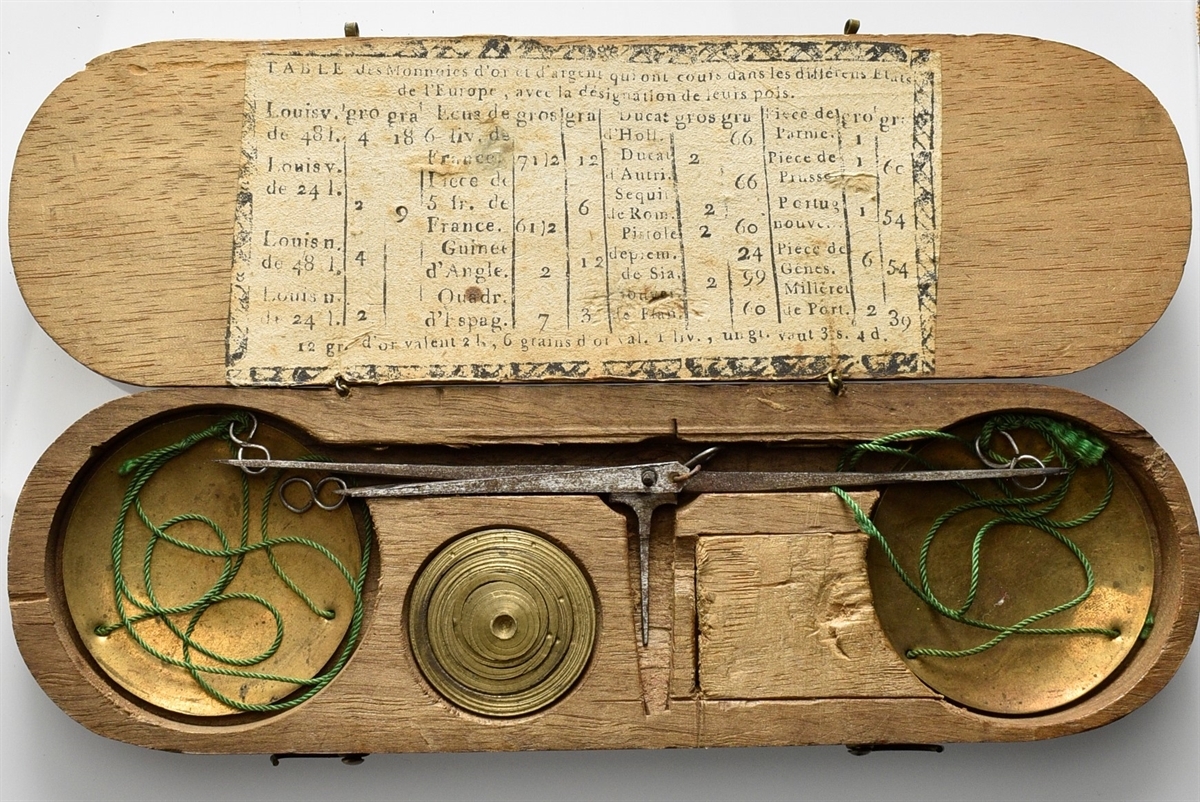 TABLE des Monnoies d'or et d'argent qui ont cours dans les différens Etats
de l'Europe, avec la désignation de leurs pois.
Louis v. gro gra Ecus de gros gra Ducat gros gra Piece de gro gr.
de 48 l. 4 18 6 liv. de d'Holl. 66 Parme. 1
Louis v. France. 7 1)2 12 Ducat 2 Piece de 1 60
de 24 l. Piece de d'Autri. 66 Prusse
2 9 5 fr. de 6 Sequi. Portug 1 54
France. 6 1)2 de Rom. 2 60 nouve.
Louis n. Guinee 12 Pistole 2 24 Piece de 6 54
de 48 l. 4 d'Angle. 2 de piem. Gènes.
Louis n. Quadr. de Sia. 2 99 Milieret
de 24 l. 2 d'Espag. 7 3 60 de Port. 2 39
12 gr. d'or valent 2 l., 6 grains d'or val. 1 liv., un gr. vaut 3 s. 4 d.